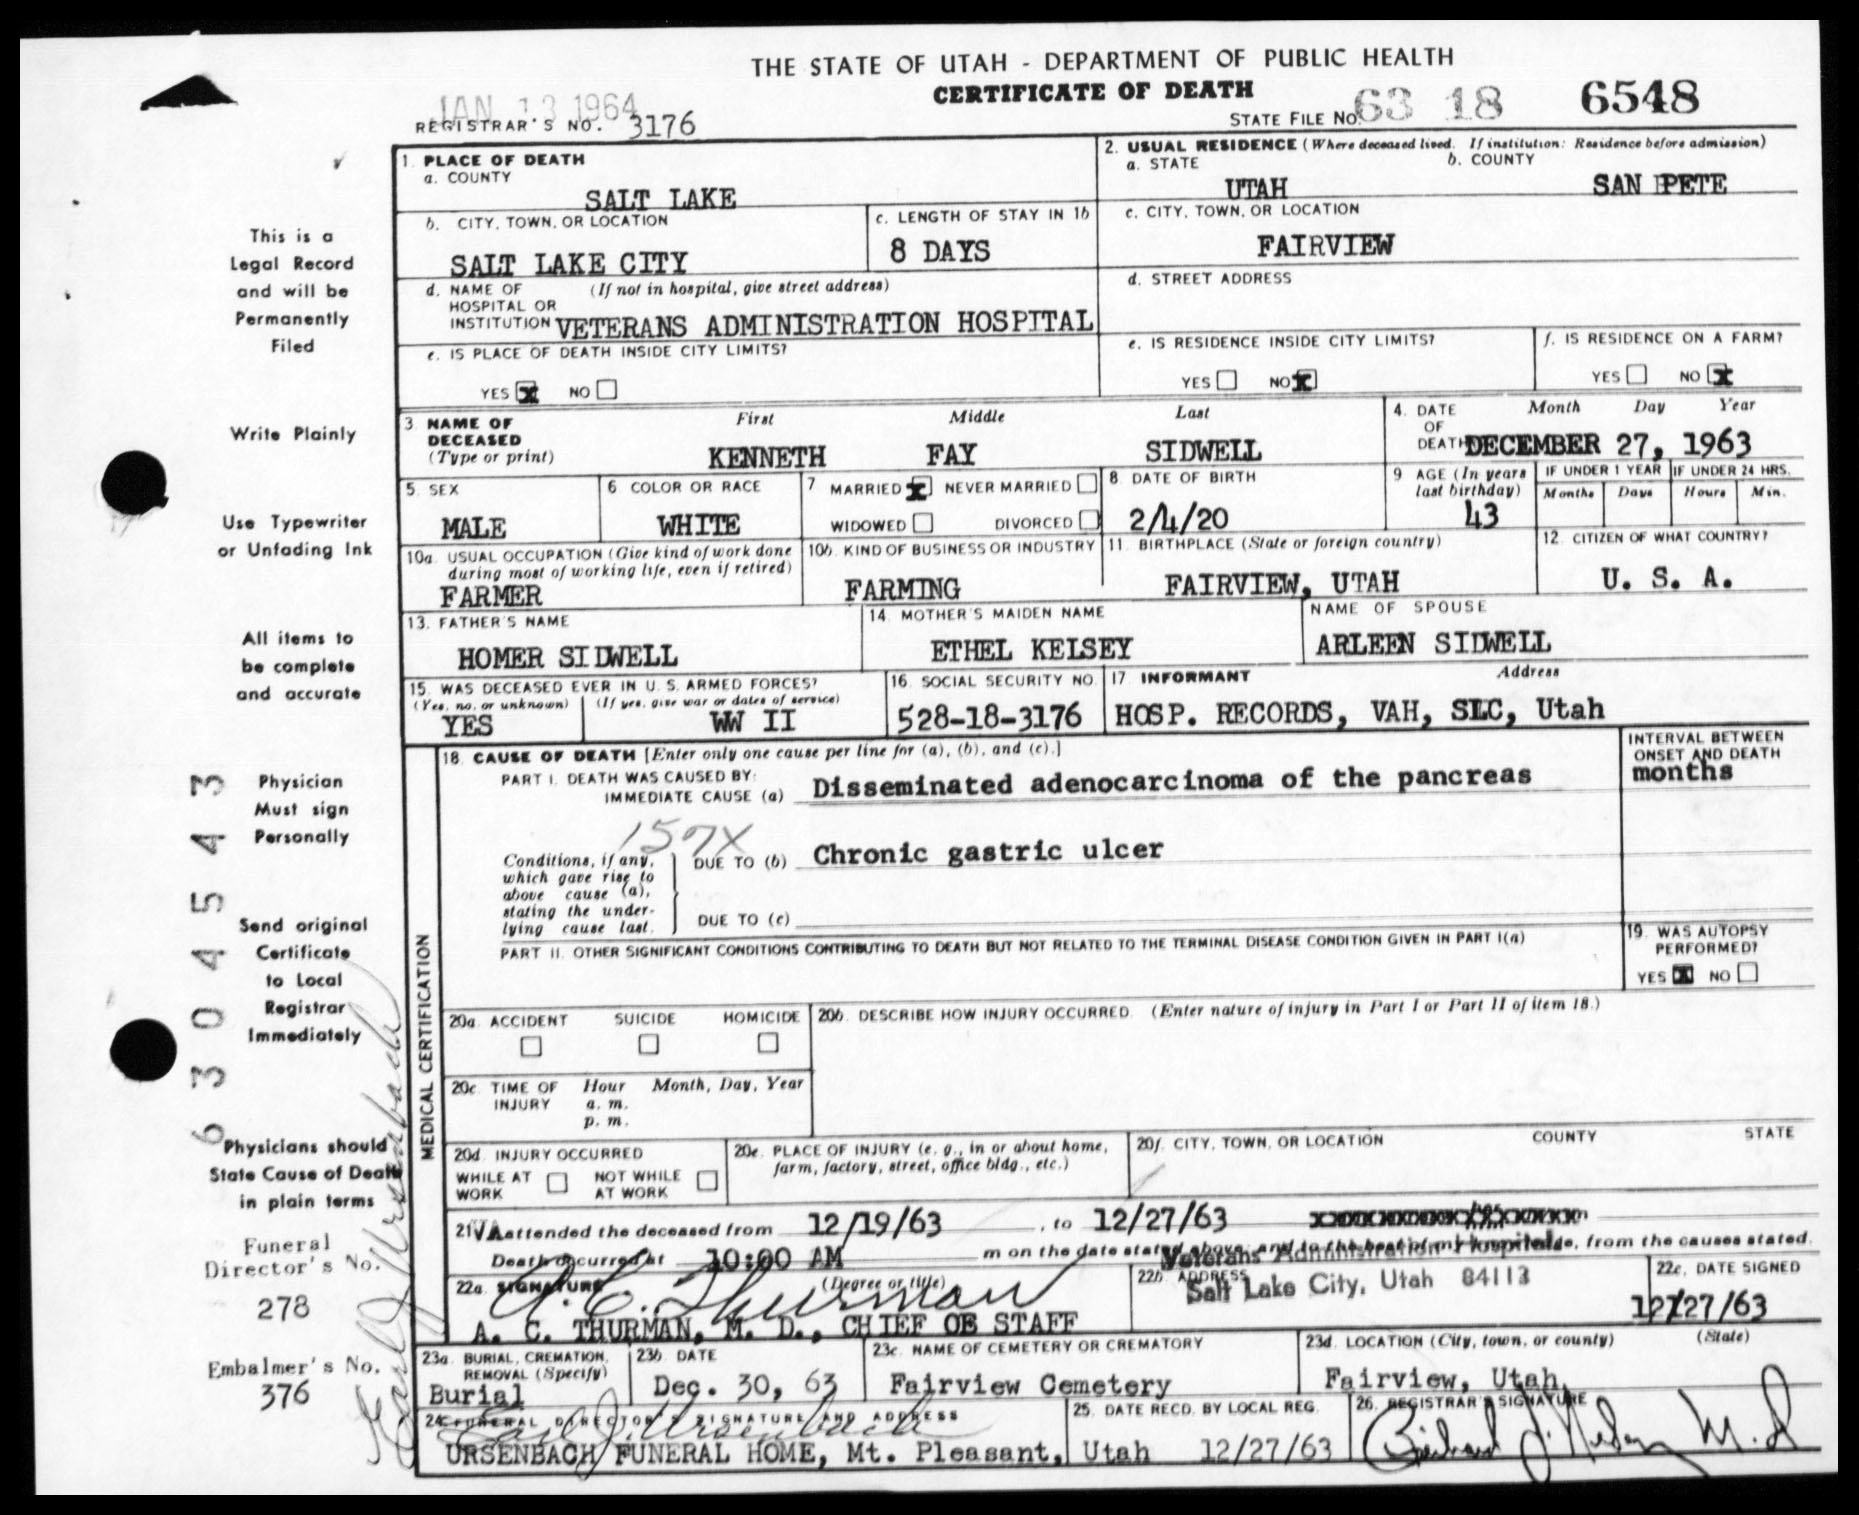 THE STATE OF UTAH - DEPARTMENT OF PUBLIC HEALTH
CERTIFICATE OF DEATH
JAN 13 1964
REGISTRAR'S NO. 3176
STATE FILE NO. 63 18 6548
1. PLACE OF DEATH
a. COUNTY
SALT LAKE
2. USUAL RESIDENCE (Where deceased lived. If institution: Residence before admission)
a. STATE
UTAH
b. COUNTY
SAN PETE
b. CITY, TOWN, OR LOCATION
SALT LAKE CITY
c. LENGTH OF STAY IN 1b
8 DAYS
c. CITY, TOWN, OR LOCATION
FAIRVIEW
d. NAME OF HOSPITAL OR INSTITUTION (If not in hospital, give street address)
VETERANS ADMINISTRATION HOSPITAL
d. STREET ADDRESS
e. IS PLACE OF DEATH INSIDE CITY LIMITS?
YES X NO
e. IS RESIDENCE INSIDE CITY LIMITS?
YES NO X
f. IS RESIDENCE ON A FARM?
YES NO X
3. NAME OF DECEASED (Type or print)
First Middle Last
KENNETH FAY SIDWELL
4. DATE OF DEATH
Month Day Year
DECEMBER 27, 1963
5. SEX
MALE
6 COLOR OR RACE
WHITE
7 MARRIED X NEVER MARRIED
WIDOWED DIVORCED
8 DATE OF BIRTH
2/4/20
9 AGE (In years last birthday)
43
IF UNDER 1 YEAR
Months Days
IF UNDER 24 HRS.
Hours Min.
10a. USUAL OCCUPATION (Give kind of work done during most of working life, even if retired)
FARMER
10b. KIND OF BUSINESS OR INDUSTRY
FARMING
11. BIRTHPLACE (State or foreign country)
FAIRVIEW, UTAH
12. CITIZEN OF WHAT COUNTRY?
U. S. A.
13. FATHER'S NAME
HOMER SIDWELL
14. MOTHER'S MAIDEN NAME
ETHEL KELSEY
NAME OF SPOUSE
ARLEEN SIDWELL
15. WAS DECEASED EVER IN U. S. ARMED FORCES?
(Yes, no, or unknown) (If yes, give war or dates of service)
YES WW II
16. SOCIAL SECURITY NO.
528-18-3176
17. INFORMANT Address
HOSP. RECORDS, VAH, SLC, Utah
MEDICAL CERTIFICATION
18. CAUSE OF DEATH [Enter only one cause per line for (a), (b), and (c).]
PART I. DEATH WAS CAUSED BY:
IMMEDIATE CAUSE (a) Disseminated adenocarcinoma of the pancreas
INTERVAL BETWEEN ONSET AND DEATH
months
157X
Conditions, if any, which gave rise to above cause (a), stating the underlying cause last.
DUE TO (b) Chronic gastric ulcer
DUE TO (c)
PART II. OTHER SIGNIFICANT CONDITIONS CONTRIBUTING TO DEATH BUT NOT RELATED TO THE TERMINAL DISEASE CONDITION GIVEN IN PART I(a)
19. WAS AUTOPSY PERFORMED?
YES X NO
20a. ACCIDENT SUICIDE HOMICIDE
20b. DESCRIBE HOW INJURY OCCURRED. (Enter nature of injury in Part I or Part II of item 18.)
20c. TIME OF INJURY Hour Month, Day, Year
a. m.
p. m.
20d. INJURY OCCURRED
WHILE AT WORK NOT WHILE AT WORK
20e. PLACE OF INJURY (e. g., in or about home, farm, factory, street, office bldg., etc.)
20f. CITY, TOWN, OR LOCATION COUNTY STATE
21. VA attended the deceased from 12/19/63, to 12/27/63
Death occurred at 10:00 AM m on the date stated above; and to the best of my knowledge, from the causes stated.
22a. SIGNATURE (Degree or title)
A. C. Thurman
A. C. THURMAN, M. D., CHIEF OF STAFF
22b. ADDRESS
Veterans Administration Hospital
Salt Lake City, Utah 84113
22c. DATE SIGNED
12/27/63
23a. BURIAL, CREMATION, REMOVAL (Specify)
Burial
23b. DATE
Dec. 30, 63
23c. NAME OF CEMETERY OR CREMATORY
Fairview Cemetery
23d. LOCATION (City, town, or county) (State)
Fairview, Utah
24. FUNERAL DIRECTOR'S SIGNATURE AND ADDRESS
Earl J. Ursenbach
URSENBACH FUNERAL HOME, Mt. Pleasant, Utah
25. DATE RECD. BY LOCAL REG.
12/27/63
26. REGISTRAR'S SIGNATURE
This is a
Legal Record
and will be
Permanently
Filed
Write Plainly
Use Typewriter
or Unfading Ink
All items to
be complete
and accurate
Physician
Must sign
Personally
Send original
Certificate
to Local
Registrar
Immediately
Physicians should
State Cause of Death
in plain terms
Funeral
Director's No.
278
Embalmer's No.
376
6304543
Earl J Ursenbach